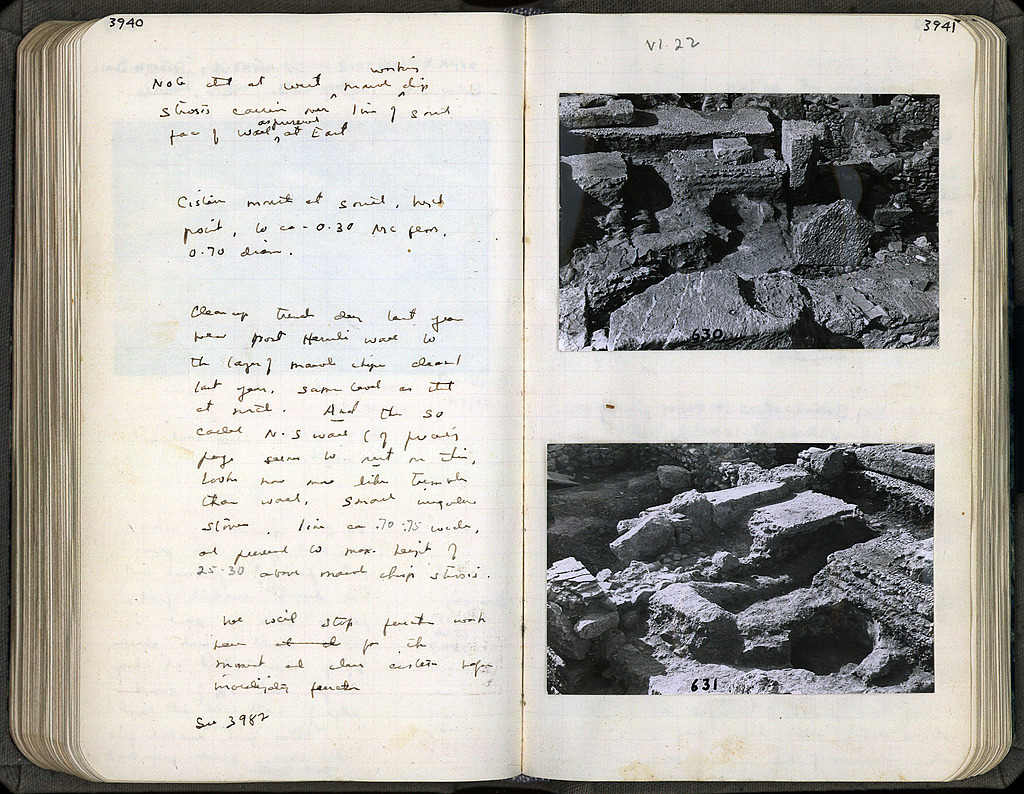 3940
Note that at west working marble chip
strosis carries over line of south
face of wall as preserved at East
Cistern mouth at south, west
point, to ca -0.30
0.70 diam.
Clean up trench dug last year
near post Herulian wall to
the layer of marble chips cleared
last year, same level as that
at north. And the so
called N-S wall (of previous
page seems to rest on this,
looks now more like tumble
than wall, small irregular
stones, line ca .70-.75 wide,
at present to max. height of
25-30 above marble chip strosis.
We will stop further work
here for the
moment and clean cistern before
investigating further
See 3982
3941
VI.22
630
631